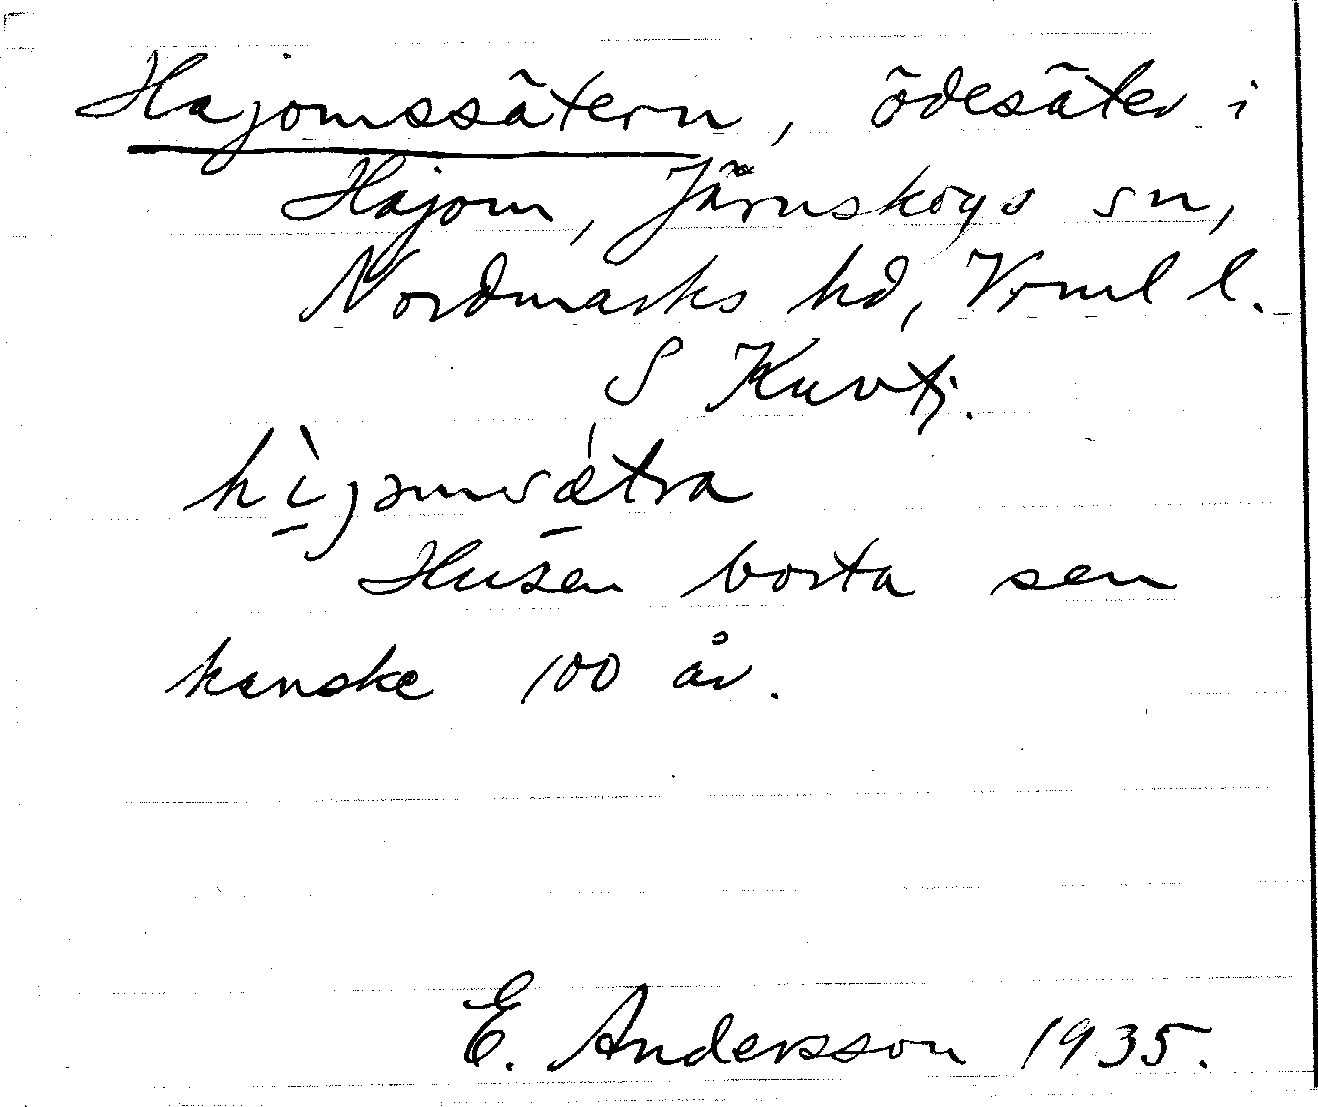 Hajomssätern, ödesäter i
Hajom, Järnskogs sn,
Nordmarks hd, Vrml l.
S Kuvtj.
Husen borta sen
kanske 100 år.
E. Andersson 1935.